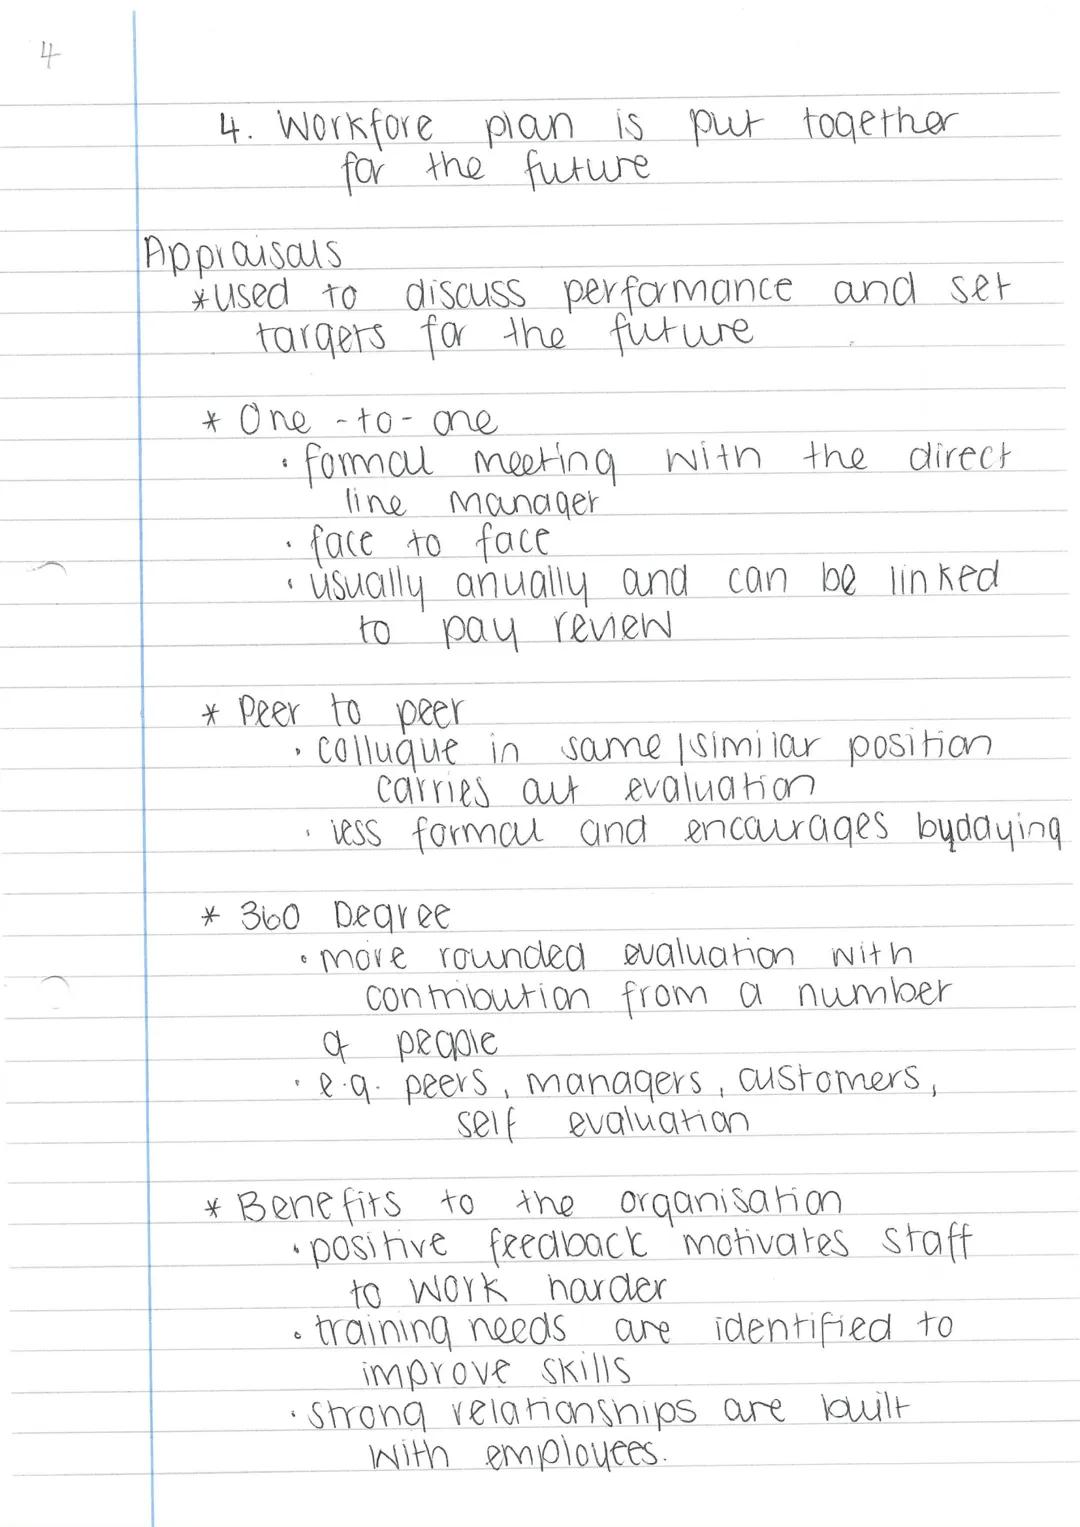 4
4. Workfore plan is put together
for the future
Appraisals
*used to discuss performance and set
targets for the future
* One-to-one
• formal meeting with the direct
line manager
• face to face
• usually anually and can be linked
to pay review
* Peer to peer
• colluque in same/similar position
carries out evaluation
• less formal and encourages bydaying
* 360 Degree
• more rounded evaluation with
contribution from a number
of people
• e.g. peers, managers, customers,
self evaluation
* Benefits to the organisation
• positive feedback motivates staff
to work harder
• training needs are identified to
improve skills
• strong relationships are built
with employees.